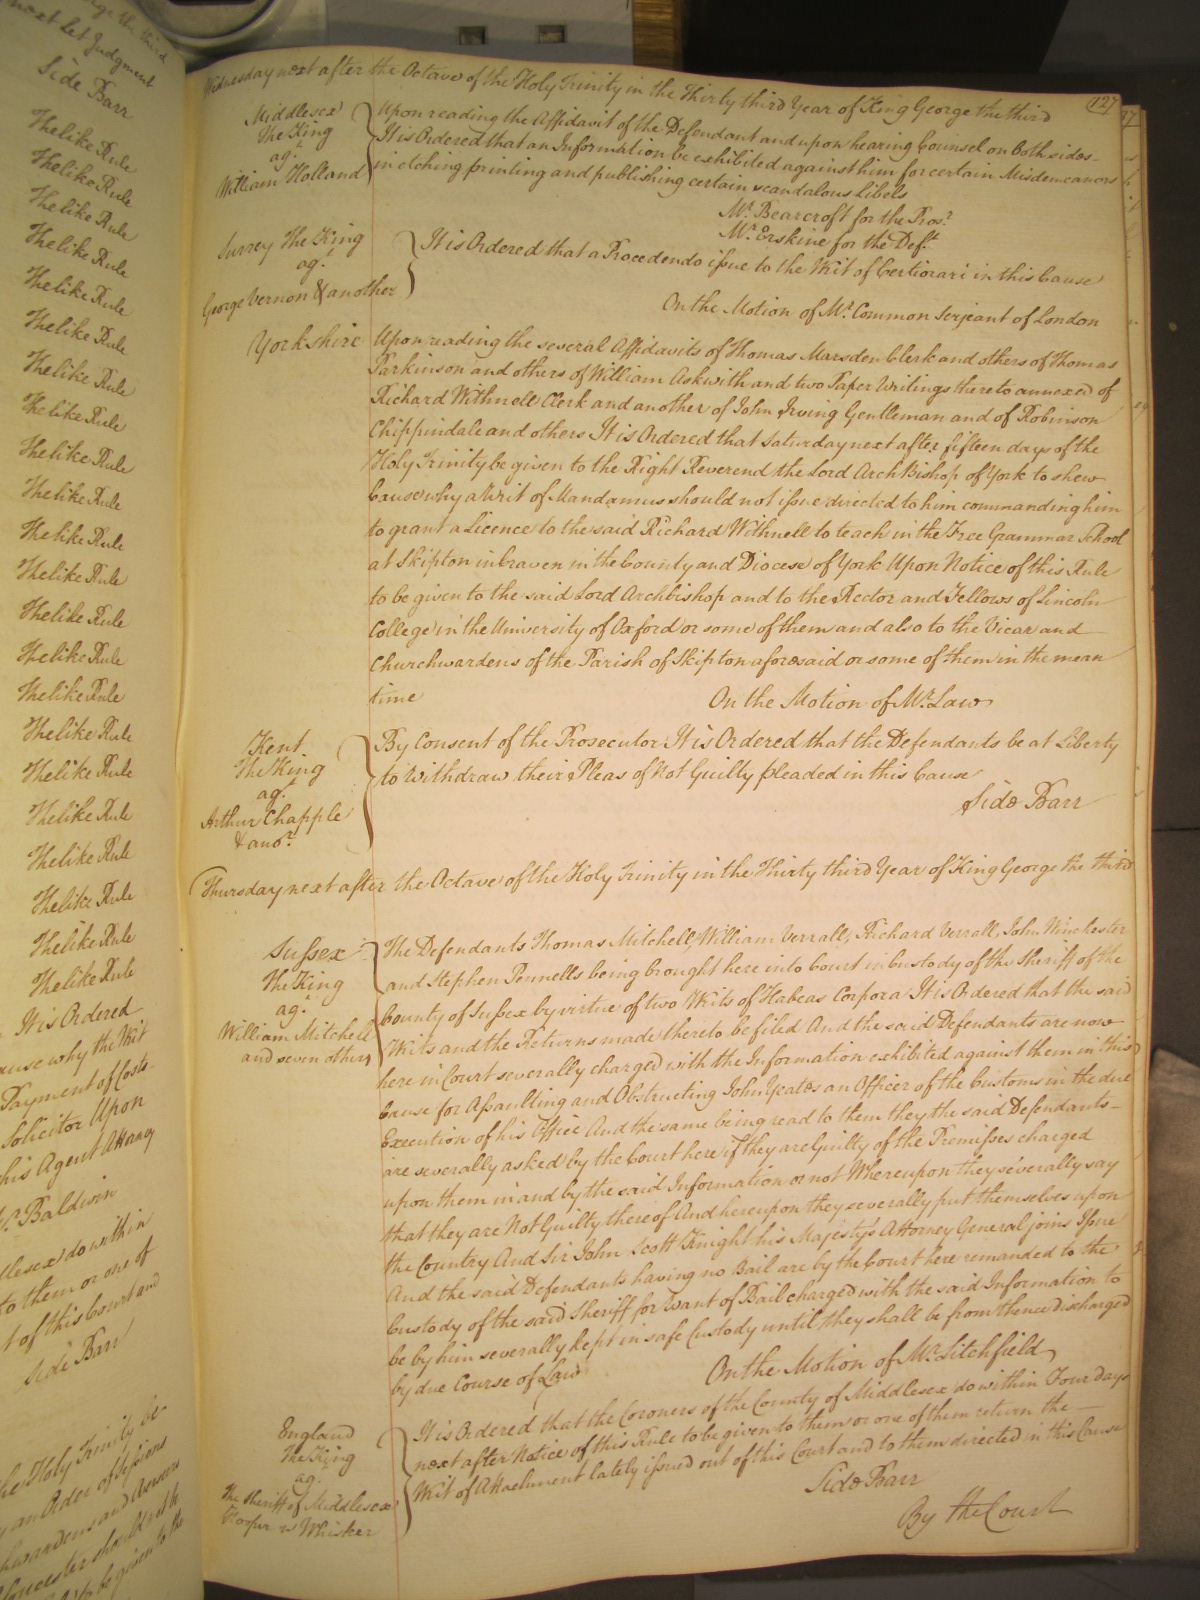 next Let Judgment
Side Barr
The like Rule
The like Rule
The like Rule
The like Rule
The like Rule
The like Rule
The like Rule
The like Rule
The like Rule
The like Rule
The like Rule
The like Rule
The like Rule
The like Rule
The like Rule
The like Rule
The like Rule
The like Rule
The like Rule
The like Rule
The like Rule
The like Rule
It is Ordered
cause why the Writ
Payment of Costs
Solicitor Upon
his Agent Attorney
Mr. Baldwin
dlesex do within
to them or one of
t of this Court and
Side Barr
the Holy Trinity be
an Order of Sessions
127
Wednesday next after the Octave of the Holy Trinity in the Thirty third Year of King George the third
Middlesex
The King
agt.
William Holland
Upon reading the Affidavit of the Defendant and upon hearing Counsel on both sides
It is Ordered that an Information be exhibited against him for certain Misdemeanors
in etching printing and publishing certain scandalous Libels
Mr. Bearcroft for the Pros.r
Mr. Erskine for the Def.t
Surrey The King
agt.
George Vernon & another
It is Ordered that a Procedendo issue to the Writ of Certiorari in this Cause
On the Motion of Mr. Common Serjeant of London
Yorkshire
Upon reading the several Affidavits of Thomas Marsden Clerk and others of Thomas
Parkinson and others of William Askwith and two Paper Writings thereto annexed of
Richard Withnell Clerk and another of John Irving Gentleman and of Robinson
Chippindale and others It is Ordered that Saturday next after fifteen days of the
Holy Trinity be given to the Right Reverend the Lord ArchBishop of York to shew
Cause why a Writ of Mandamus should not issue directed to him commanding him
to grant a Licence to the said Richard Withnell to teach in the Free Grammar School
at Skipton in Craven in the County and Diocese of York Upon Notice of this Rule
to be given to the said Lord Archbishop and to the Rector and Fellows of Lincoln
College in the University of Oxford or some of them and also to the Vicar and
Churchwardens of the Parish of Skipton aforesaid or some of them in the mean
time
On the Motion of Mr. Law
Kent
The King
agt.
Arthur Chapple
& ano.r
By Consent of the Prosecutor It is Ordered that the Defendants be at Liberty
to Withdraw their Pleas of Not Guilty pleaded in this Cause
Side Barr
Thursday next after the Octave of the Holy Trinity in the Thirty third Year of King George the third
Sussex
The King
agt.
William Mitchell
and seven others
The Defendants Thomas Mitchell, William Verrall, Richard Verrall, John Winchester
and Stephen Pennells being brought here into Court in Custody of the Sheriff of the
County of Sussex by virtue of two Writs of Habeas Corpora It is Ordered that the said
Writs and the Returns made thereto be filed And the said Defendants are now
here in Court severally charged with the Information exhibited against them in this
Cause for Assaulting and Obstructing John Yeates an Officer of the Customs in the due
Execution of his Office And the same being read to them they the said Defendants
are severally asked by the Court here if they are Guilty of the Premisses charged
upon them in and by the said Information or not Whereupon they severally say
that they are Not Guilty thereof And hereupon they severally put themselves upon
the Country And Sir John Scott Knight his Majesty's Attorney General joins Issue
And the said Defendants having no Bail are by the Court here remanded to the
Custody of the said Sheriff for Want of Bail charged with the said Information to
be by him severally kept in safe Custody until they shall be from thence discharged
by due Course of Law
On the Motion of Mr. Litchfield
England
The King
agt.
The Sheriff of Middlesex
Cooper v Whisker
It is Ordered that the Coroners of the County of Middlesex do within Four days
next after Notice of this Rule to be given to them or one of them return the
Writ of Attachment lately issued out of this Court and to them directed in this Cause
Side Barr
By the Court